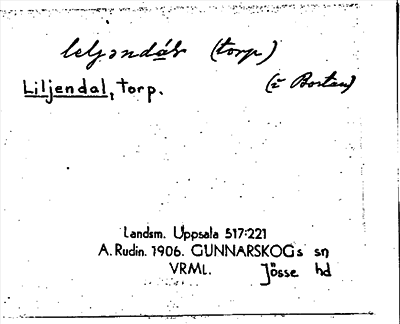 leljəndáɫ (torp)
Liljendal, torp.
(i Bortan)
Landsm. Uppsala 517:221
A. Rudin. 1906. GUNNARSKOGs sn
VRML. Jösse hd